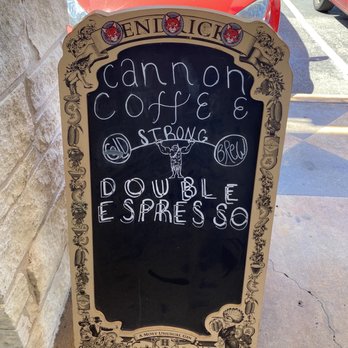 HENDRICK'S
cannon
COFFEE
STRONG
COLD BREW
DOUBLE
ESPRESSO
A MOST UNUSUAL GIN